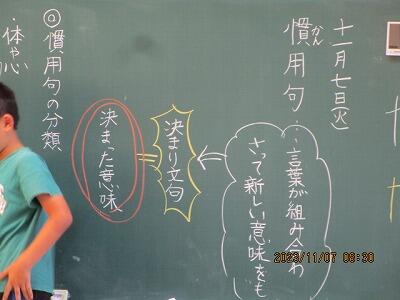 十一月七日(火)
慣用句…言葉が組み合わ
かん
さって新しい意味をも
決まり文句
=
決まった意味
◎慣用句の分類
・体や心
2023/11/07 08:30